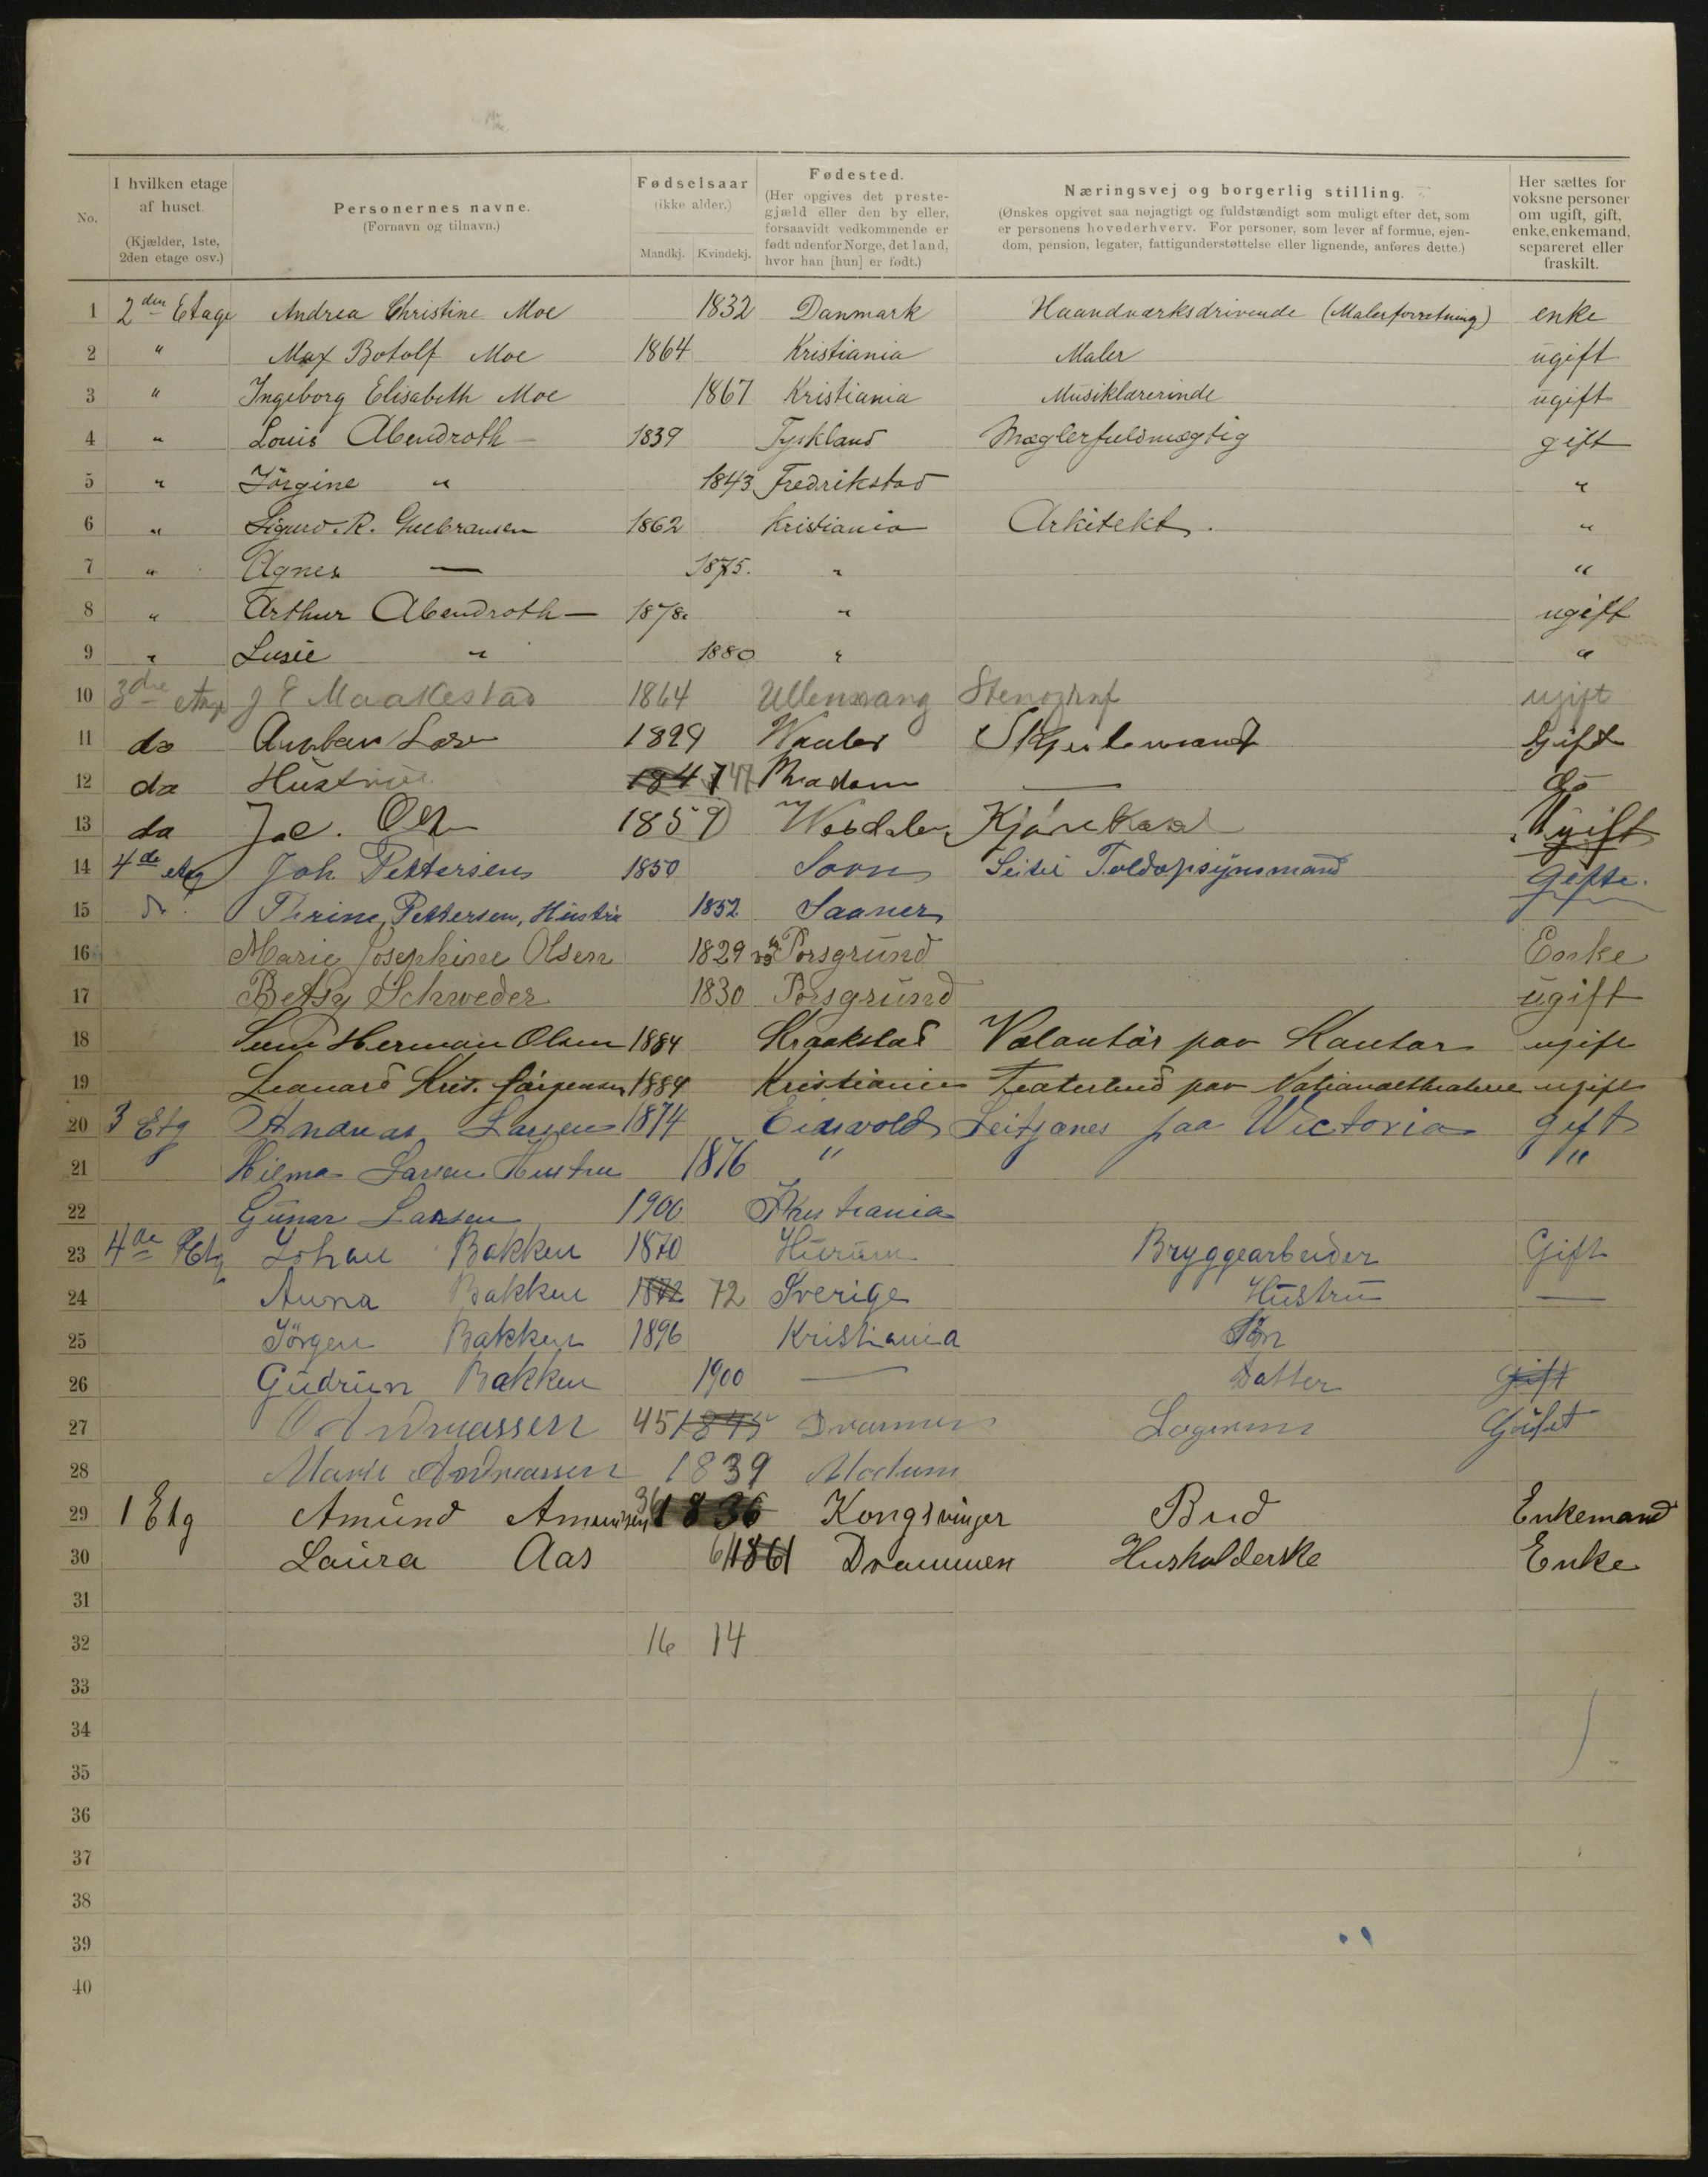 No.
I hvilken etage af huset. (Kjælder, 1ste, 2den etage osv.)
Personernes navne. (Fornavn og tilnavn.)
Fødselsaar (ikke alder.) Mandkj. Kvindekj.
Fødested. (Her opgives det prestegjæld eller den by eller, forsaavidt vedkommende er født udenfor Norge, det land, hvor han [hun] er født.)
Næringsvej og borgerlig stilling. (Ønskes opgivet saa nøjagtigt og fuldstændigt som muligt efter det, som er personens hovederhverv. For personer, som lever af formue, ejendom, pension, legater, fattigunderstøttelse eller lignende, anføres dette.)
Her sættes for voksne personer om ugift, gift, enke, enkemand, separeret eller fraskilt.
1 2den Etage Andrea Christine Moe 1832 Danmark Haandværksdrivende (Malerforretning) enke
2 " Max Botolf Moe 1864 Kristiania Maler ugift
3 " Ingeborg Elisabeth Moe 1867 Kristiania Musiklærerinde ugift
4 " Louis Abendroth 1839 Tyskland Mæglerfuldmægtig gift
5 " Jörgine " 1843 Fredrikstad "
6 " Sigurd. R. 1862 Kristiania Arkitekt. "
7 " Agnes — 1875. " "
8 " Arthur Abendroth 1878. " ugift
9 " Lusie " 1880 " "
10 3die etage J E Maakestad 1864 Ullensvang Stenograf ugift
11 do Gift
12 do Hustrue 1847 47 — do
13 do Jac. 1859 Ugift
14 4de etg Joh. Pettersen 1850 Gifte.
15 do. Thrine Pettersen, Hustru 1852
16 Marie Josephine Olsen 1829 Porsgrund Enke
17 Betsy Schweder 1830 Porsgrund ugift
18 Herman Olsen 1884 Kraakstad Volantör paa Kantor ugift
19 Leonard Kris. Jörgensen 1884 Kristiania Teaterbud paa Nationaltheateret ugift
20 3 Etg Andreas Larsen 1874 Eidsvold paa Victoria gift
21 Hilma Larsen Hustru 1876 " "
22 Gunar Larsen 1900 Kristiania
23 4de Etg Johan Bakken 1870 Hurum Bryggearbeider Gift
24 Anna Bakken 1872 72 Sverige Hustru —
25 Jörgen Bakken 1896 Kristiania Sön
26 Gudrun Bakken 1900 — Datter Gift
27 O Andreassen 45 1845 Drammen
28 Marie Andreassen 1839 Modum
29 1 Etg Amund Amundsen 36 1836 Kongsvinger Bud Enkemand
30 Laura Aas 61 1861 Drammen Husholderske Enke
31
32 16 14
33
34
35
36
37
38
39
40